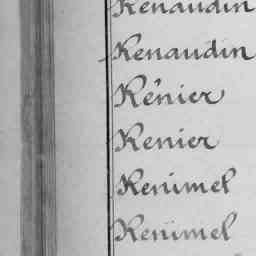 Renaudin
Renaudin
Rénier
Renier
Renimel
Renimel